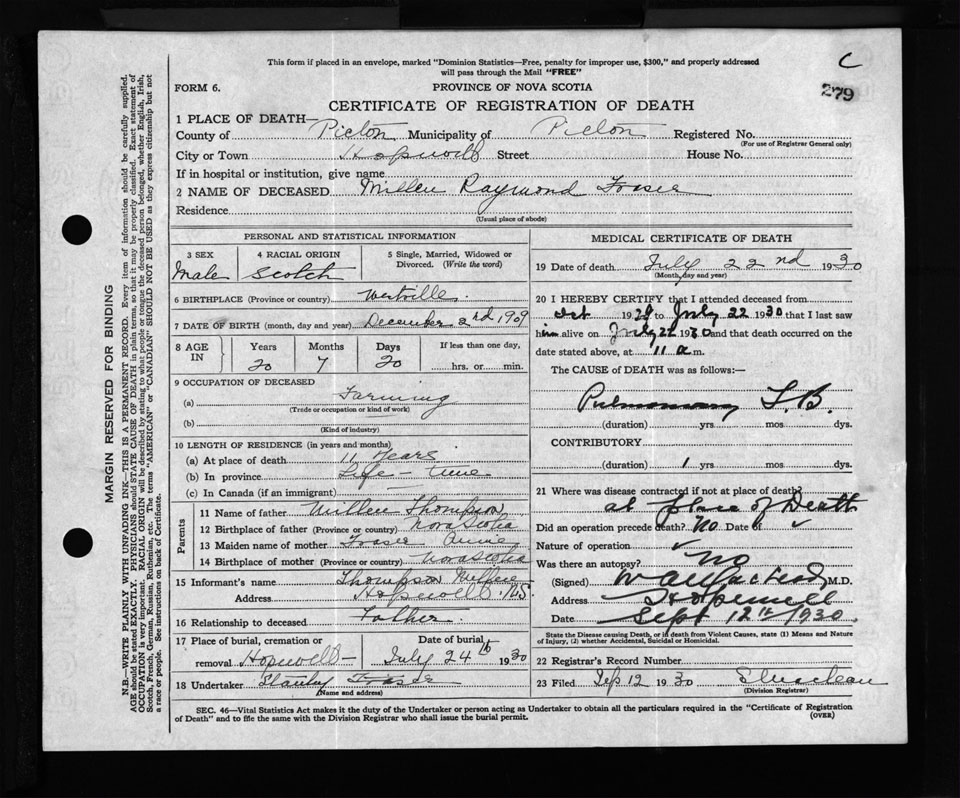 This form if placed in an envelope, marked "Dominion Statistics—Free, penalty for improper use, $300," and properly addressed
will pass through the Mail "FREE"
C
279
FORM 6.
PROVINCE OF NOVA SCOTIA
CERTIFICATE OF REGISTRATION OF DEATH
1 PLACE OF DEATH—
County of Pictou Municipality of Pictou Registered No.
(For use of Registrar General only)
City or Town Hopewell Street House No.
If in hospital or institution, give name
2 NAME OF DECEASED Millen Raymond Fraser
Residence
(Usual place of abode)
PERSONAL AND STATISTICAL INFORMATION
3 SEX 4 RACIAL ORIGIN 5 Single, Married, Widowed or
Divorced. (Write the word)
Male Scotch
6 BIRTHPLACE (Province or country) Westville
7 DATE OF BIRTH (month, day and year) December 2nd 1909
8 AGE IN Years Months Days If less than one day,
20 7 20 hrs. or min.
9 OCCUPATION OF DECEASED
(a) Farming
(Trade or occupation or kind of work)
(b)
(Kind of industry)
10 LENGTH OF RESIDENCE (in years and months)
(a) At place of death 11 Years
(b) In province Life-time
(c) In Canada (if an immigrant)
Parents
11 Name of father Millen Thompson
12 Birthplace of father (Province or country) Nova Scotia
13 Maiden name of mother Fraser Annie
14 Birthplace of mother (Province or country) Nova Scotia
15 Informant's name Thompson Millen
Address Hopewell N.S.
16 Relationship to deceased Father
17 Place of burial, cremation or Date of burial
removal Hopewell July 24th 1930
18 Undertaker Stanley Fraser
(Name and address)
MEDICAL CERTIFICATE OF DEATH
19 Date of death July 22nd 1930
(Month, day and year)
20 I HEREBY CERTIFY that I attended deceased from
Oct 1929 to July 22 1930 that I last saw
him alive on July 22 1930 and that death occurred on
date stated above, at 11 a m.
The CAUSE of DEATH was as follows:—
Pulmonary T.B.
(duration) yrs mos dys.
CONTRIBUTORY
(duration) 1 yrs mos. dys.
21 Where was disease contracted if not at place of death?
at place of Death
Did an operation precede death? No Date of ✓
Nature of operation ✓
Was there an autopsy? No
(Signed) M.D.
Address Hopewell
Date Sept 12th 1930
State the Disease causing Death, or in death from Violent Causes, state (1) Means and Nature
of Injury, (2) whether Accidental, Suicidal or Homicidal.
22 Registrar's Record Number
23 Filed Sep 12 1930
(Division Registrar)
SEC. 46—Vital Statistics Act makes it the duty of the Undertaker or person acting as Undertaker to obtain all the particulars required in the "Certificate of Registration
of Death" and to file the same with the Division Registrar who shall issue the burial permit.
(OVER)
MARGIN RESERVED FOR BINDING
N.B.—WRITE PLAINLY WITH UNFADING INK—THIS IS A PERMANENT RECORD. Every item of information should be carefully supplied.
AGE should be stated EXACTLY. PHYSICIANS should STATE CAUSE OF DEATH in plain terms, so that it may be properly classified. Exact statement of
OCCUPATION is very important. RACIAL ORIGIN will be described by stating to what people or tongue the deceased person belonged, whether English, Irish,
Scotch, French, German, Russian, Ruthenian, etc. The terms "AMERICAN" or "CANADIAN" SHOULD NOT BE USED as they express citizenship but not
a race or people. See instructions on back of Certificate.